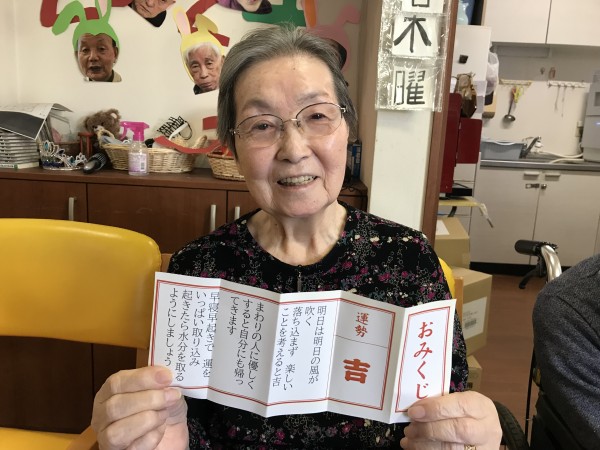 木
曜
おみくじ
運勢
吉
明日は明日の風が
吹く
落ち込まず 楽しい
ことを考えると吉
まわりの人に優しく
すると自分にも帰っ
てきます
早寝早起きで 運を
いっぱい取り込み
起きたら水分を取る
ようにしましょう